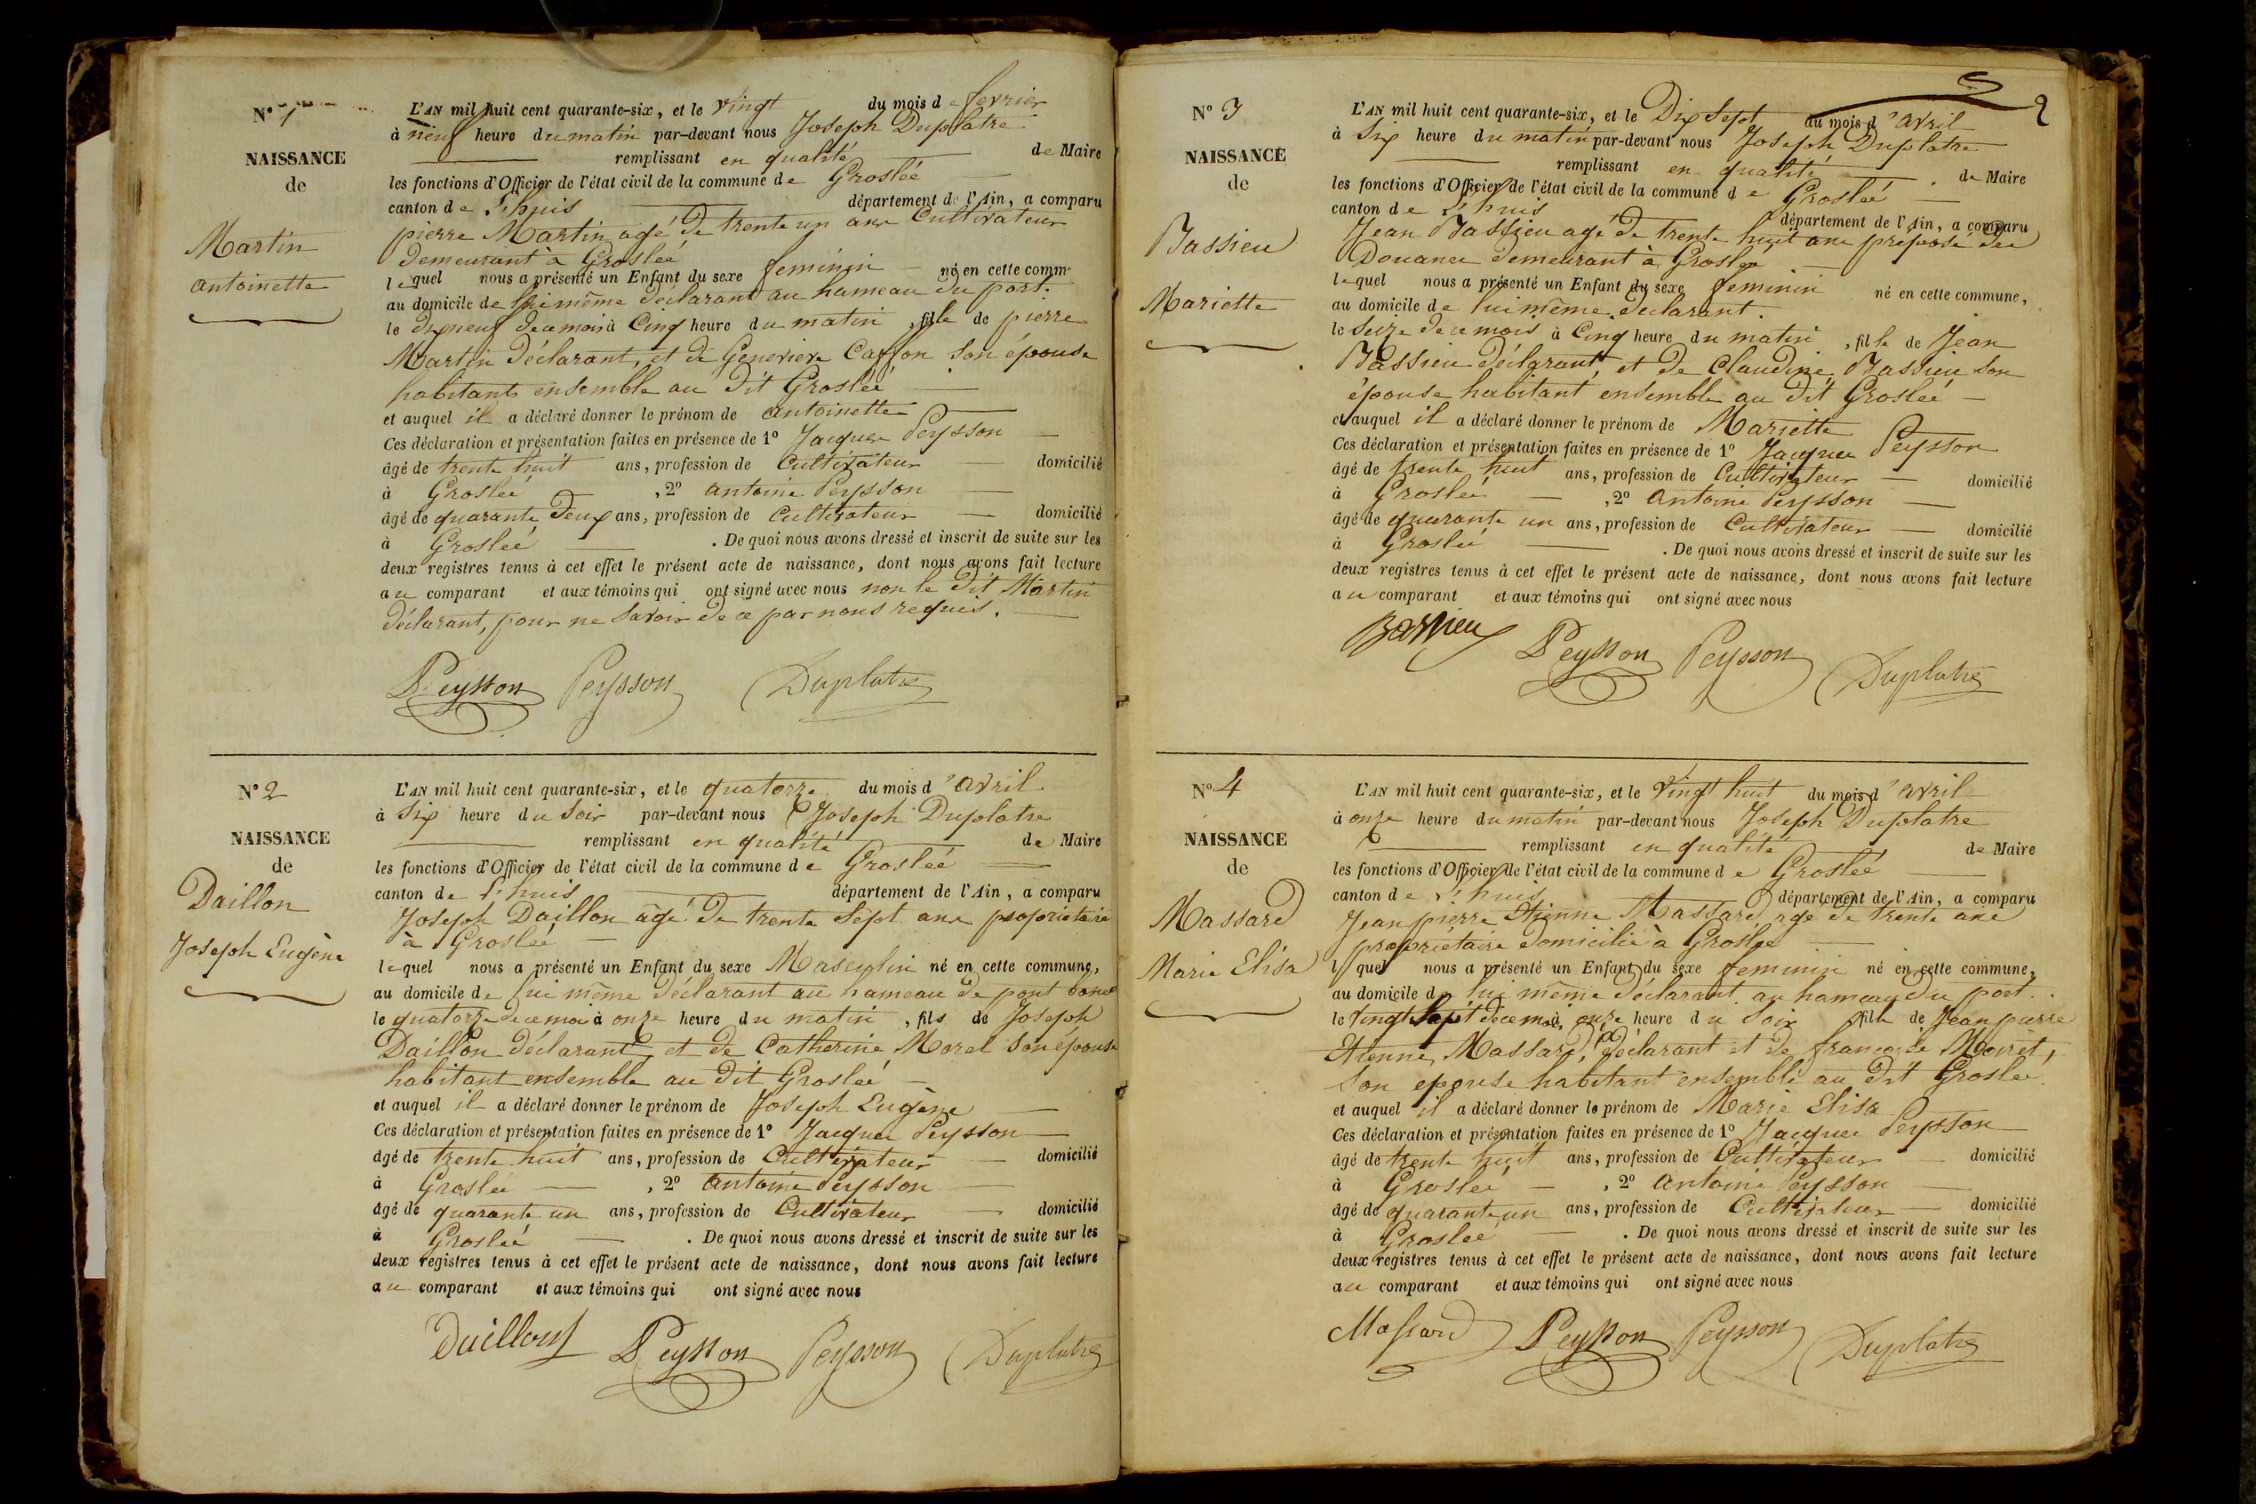 N° 1
NAISSANCE
de
Martin
antoinette
L'AN mil huit cent quarante-six, et le vingt du mois de fevrier
à neuf heure du matin par-devant nous Joseph Duplatre
remplissant en qualité de Maire
les fonctions d'Officier de l'état civil de la commune de Grosleé
canton de Lhuis département de l'Ain, a comparu
pierre Martin agé de trente un ans Cultivateur
demeurant à Grosleé
lequel nous a présenté un Enfant du sexe feminin né en cette comm
au domicile de lui même déclarant au hameau du port.
le dixneuf de ce mois à Cinq heure du matin, fille de pierre
Martin déclarant, et de Genevieve Caffon son épouse
habitants ensemble au dit Grosleé
et auquel il a déclaré donner le prénom de antoinette
Ces déclaration et présentation faites en présence de 1° Jacques Peysson
âgé de trente huit ans, profession de Cultivateur domicilié
à Grosleé, 2° antoine Peysson
âgé de quarante deux ans, profession de Cultivateur domicilié
à Grosleé. De quoi nous avons dressé et inscrit de suite sur les
deux registres tenus à cet effet le présent acte de naissance, dont nous avons fait lecture
au comparant et aux témoins qui ont signé avec nous non le dit Martin
déclarant, pour ne savoir de ce par nous requis.
Peysson Peysson Duplatre
N° 2
NAISSANCE
de
Daillon
Joseph Eugène
L'AN mil huit cent quarante-six, et le quatorze du mois d'avril
à six heure du soir par-devant nous Joseph Duplatre
remplissant en qualité de Maire
les fonctions d'Officier de l'état civil de la commune de Grosleé
canton de Lhuis département de l'Ain, a comparu
Joseph Daillon âgé de trente sept ans propriétaire
à Grosleé
lequel nous a présenté un Enfant du sexe Masculin né en cette commune,
au domicile de lui même déclarant au hameau de pont
le quatorze de ce mois à onze heure du matin, fils de Joseph
Daillon déclarant, et de Catherine Morel son épouse
habitant ensemble au dit Grosleé
et auquel il a déclaré donner le prénom de Joseph Eugène
Ces déclaration et présentation faites en présence de 1° Jacques Peysson
âgé de trente huit ans, profession de Cultivateur domicilié
à Grosleé, 2° antoine Peysson
âgé de quarante un ans, profession de Cultivateur domicilié
à Grosleé. De quoi nous avons dressé et inscrit de suite sur les
deux registres tenus à cet effet le présent acte de naissance, dont nous avons fait lecture
au comparant et aux témoins qui ont signé avec nous
Daillon Peysson Peysson Duplatre
2
N° 3
NAISSANCE
de
Bassieu
Mariette
L'AN mil huit cent quarante-six, et le Dix sept du mois d'avril
à six heure du matin par-devant nous Joseph Duplatre
remplissant en qualité de Maire
les fonctions d'Officier de l'état civil de la commune de Grosleé
canton de Lhuis département de l'Ain, a comparu
Jean Bassieu agé de trente huit ans préposé des
Douanes demeurant à Grosleé
lequel nous a présenté un Enfant du sexe feminin né en cette commune,
au domicile de lui même déclarant.
le seize de ce mois à Cinq heure du matin, fille de Jean
Bassieu déclarant, et de Claudine Bassieu son
épouse habitant ensemble au dit Grosleé
et auquel il a déclaré donner le prénom de Mariette
Ces déclaration et présentation faites en présence de 1° Jacques Peysson
âgé de trente huit ans, profession de Cultivateur domicilié
à Grosleé, 2° antoine Peysson
âgé de quarante un ans, profession de Cultivateur domicilié
à Grosleé. De quoi nous avons dressé et inscrit de suite sur les
deux registres tenus à cet effet le présent acte de naissance, dont nous avons fait lecture
au comparant et aux témoins qui ont signé avec nous
Bassieu Peysson Peysson Duplatre
N° 4
NAISSANCE
de
Massard
Marie Elisa
L'AN mil huit cent quarante-six, et le vingt huit du mois d'avril
à onze heure du matin par-devant nous Joseph Duplatre
remplissant en qualité de Maire
les fonctions d'Officier de l'état civil de la commune de Grosleé
canton de Lhuis département de l'Ain, a comparu
Jean pierre Etienne Massard agé de trente ans
propriétaire domicilié à Grosleé
lequel nous a présenté un Enfant du sexe feminin né en cette commune,
au domicile de lui même déclarant au hameau du port.
le vingt sept de ce mois à onze heure du soir fille de Jean pierre
Etienne Massard, déclarant et de francoise
son epouse habitant ensemble au dit Grosleé.
et auquel il a déclaré donner le prénom de Marie Elisa
Ces déclaration et présentation faites en présence de 1° Jacques Peysson
âgé de trente huit ans, profession de Cultivateur domicilié
à Grosleé, 2° antoine Peysson
âgé de quarante un ans, profession de Cultivateur domicilié
à Grosleé. De quoi nous avons dressé et inscrit de suite sur les
deux registres tenus à cet effet le présent acte de naissance, dont nous avons fait lecture
au comparant et aux témoins qui ont signé avec nous
Massard Peysson Peysson Duplatre